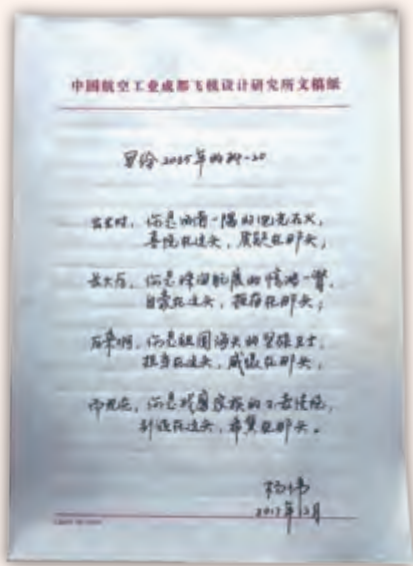 中国航空工业成都飞机设计研究所文稿纸
写给2035年的歼-20
出生时，你是西南一隅的电光石火，
喜悦在这头，质疑在那头；
长大后，你是珠海航展的惊鸿一瞥，
自豪在这头，在那头；
后来啊，你是祖国海天的坚强卫士，
担当在这头，威慑在那头；
而现在，你是家族的传统，
在这头，在那头。
杨伟
2017年12月